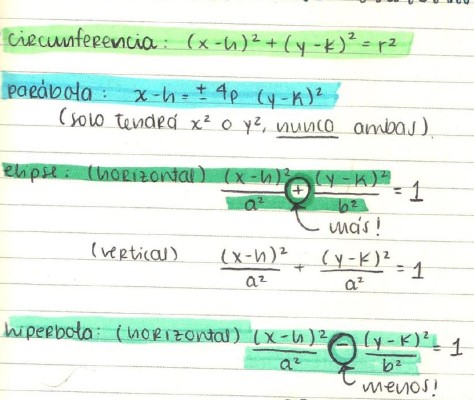 circunferencia: (x-h)² + (y-k)² = r²
parábola: x-h = ± 4p (y-k)²
(solo tendrá x² o y², nunca ambas).
elipse: (horizontal) (x-h)²/a² + (y-k)²/b² = 1
más!
(vertical) (x-h)²/a² + (y-k)²/a² = 1
hiperbola: (horizontal) (x-h)²/a² - (y-k)²/b² = 1
menos!